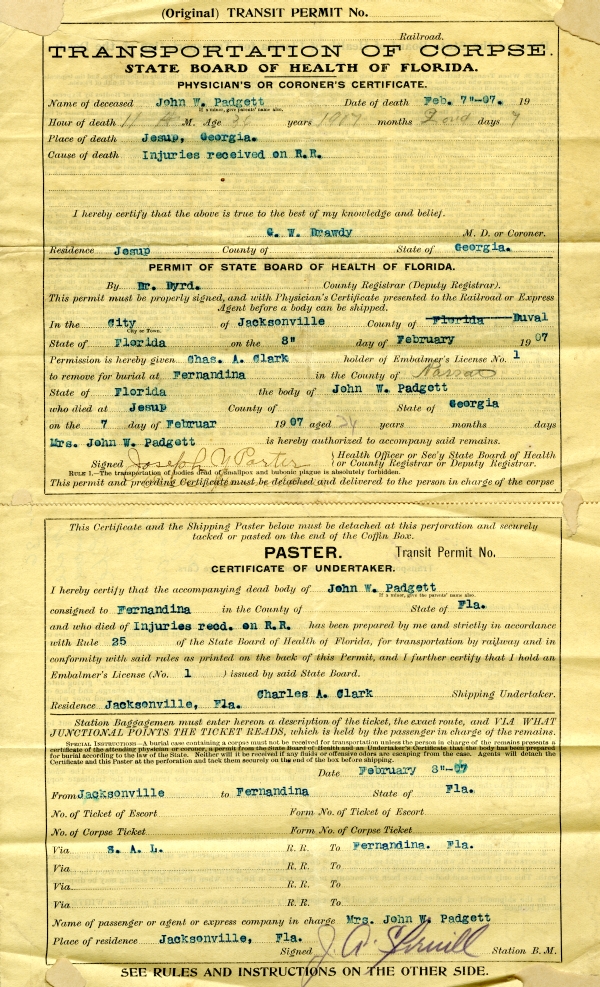 (Original) TRANSIT PERMIT No.
Railroad.
TRANSPORTATION OF CORPSE.
STATE BOARD OF HEALTH OF FLORIDA.
PHYSICIAN'S OR CORONER'S CERTIFICATE.
Name of deceased John W. Padgett Date of death Feb. 7"-07. 19
If a minor, give parents' name also.
Hour of death 11 M. Age years 1907 months days 7
Place of death Jesup, Georgia.
Cause of death Injuries received on R.R.
I hereby certify that the above is true to the best of my knowledge and belief.
G. W. Drawdy M. D. or Coroner.
Residence Jesup County of State of Georgia.
PERMIT OF STATE BOARD OF HEALTH OF FLORIDA.
By Dr. Byrd. County Registrar (Deputy Registrar).
This permit must be properly signed, and with Physician's Certificate presented to the Railroad or Express
Agent before a body can be shipped.
In the City of Jacksonville County of Florida Duval
City or Town.
State of Florida on the 8" day of February 1907
Permission is hereby given Chas. A. Clark holder of Embalmer's License No. 1
to remove for burial at Fernandina in the County of Nassau
State of Florida the body of John W. Padgett
who died at Jesup County of State of Georgia
on the 7 day of Februar 1907 aged years months days
Mrs. John W. Padgett is hereby authorized to accompany said remains.
Signed Joseph Y. Porter Health Officer or Sec'y State Board of Health
or County Registrar or Deputy Registrar.
RULE 1.—The transportation of bodies dead of smallpox and bubonic plague is absolutely forbidden.
This permit and preceding Certificate must be detached and delivered to the person in charge of the corpse
This Certificate and the Shipping Paster below must be detached at this perforation and securely
tacked or pasted on the end of the Coffin Box.
PASTER. Transit Permit No.
CERTIFICATE OF UNDERTAKER.
I hereby certify that the accompanying dead body of John W. Padgett
If a minor, give the parents' name also.
consigned to Fernandina in the County of State of Fla.
and who died of Injuries recd. on R.R. has been prepared by me and strictly in accordance
with Rule 25 of the State Board of Health of Florida, for transportation by railway and in
conformity with said rules as printed on the back of this Permit, and I further certify that I hold an
Embalmer's License (No. 1 ) issued by said State Board.
Charles A. Clark Shipping Undertaker.
Residence Jacksonville, Fla.
Station Baggagemen must enter hereon a description of the ticket, the exact route, and VIA WHAT
JUNCTIONAL POINTS THE TICKET READS, which is held by the passenger in charge of the remains.
SPECIAL INSTRUCTIONS—A burial case containing a corpse must not be received for transportation unless the person in charge of the remains presents a
certificate of the attending physician or coroner, a permit from the State Board of Health and an Undertaker's Certificate that the body has been prepared
for burial according to the law of the State. Neither will it be received if any fluids or offensive odors are escaping from the case. Agents will detach the
Certificate and this Paster at the perforation and tack them securely on the end of the box before shipping.
Date February 8"-07
From Jacksonville to Fernandina State of Fla.
No. of Ticket of Escort Form No. of Ticket of Escort
No. of Corpse Ticket Form No. of Corpse Ticket
Via S. A. L. R. R. To Fernandina. Fla.
Via R. R. To
Via R. R. To
Via R. R. To
Name of passenger or agent or express company in charge Mrs. John W. Padgett
Place of residence Jacksonville, Fla.
Signed J. A. Station B. M.
SEE RULES AND INSTRUCTIONS ON THE OTHER SIDE.